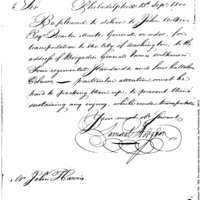 Sir Philadelphia 18th Sept. 1800
Be pleased to deliver to John Wilkins
Esqr. Quarter Master General, or order, for
transportation to the City of Washington, to the
address of Brigadier General James Wilkinson
Four regimental Standards, and four Battalion
Colours, particular attention must be
had to packing them up, to prevent their
sustaining any injury, while under transportation
Your most Obt Servant
Samuel Hodgdon
Mr. John Harris